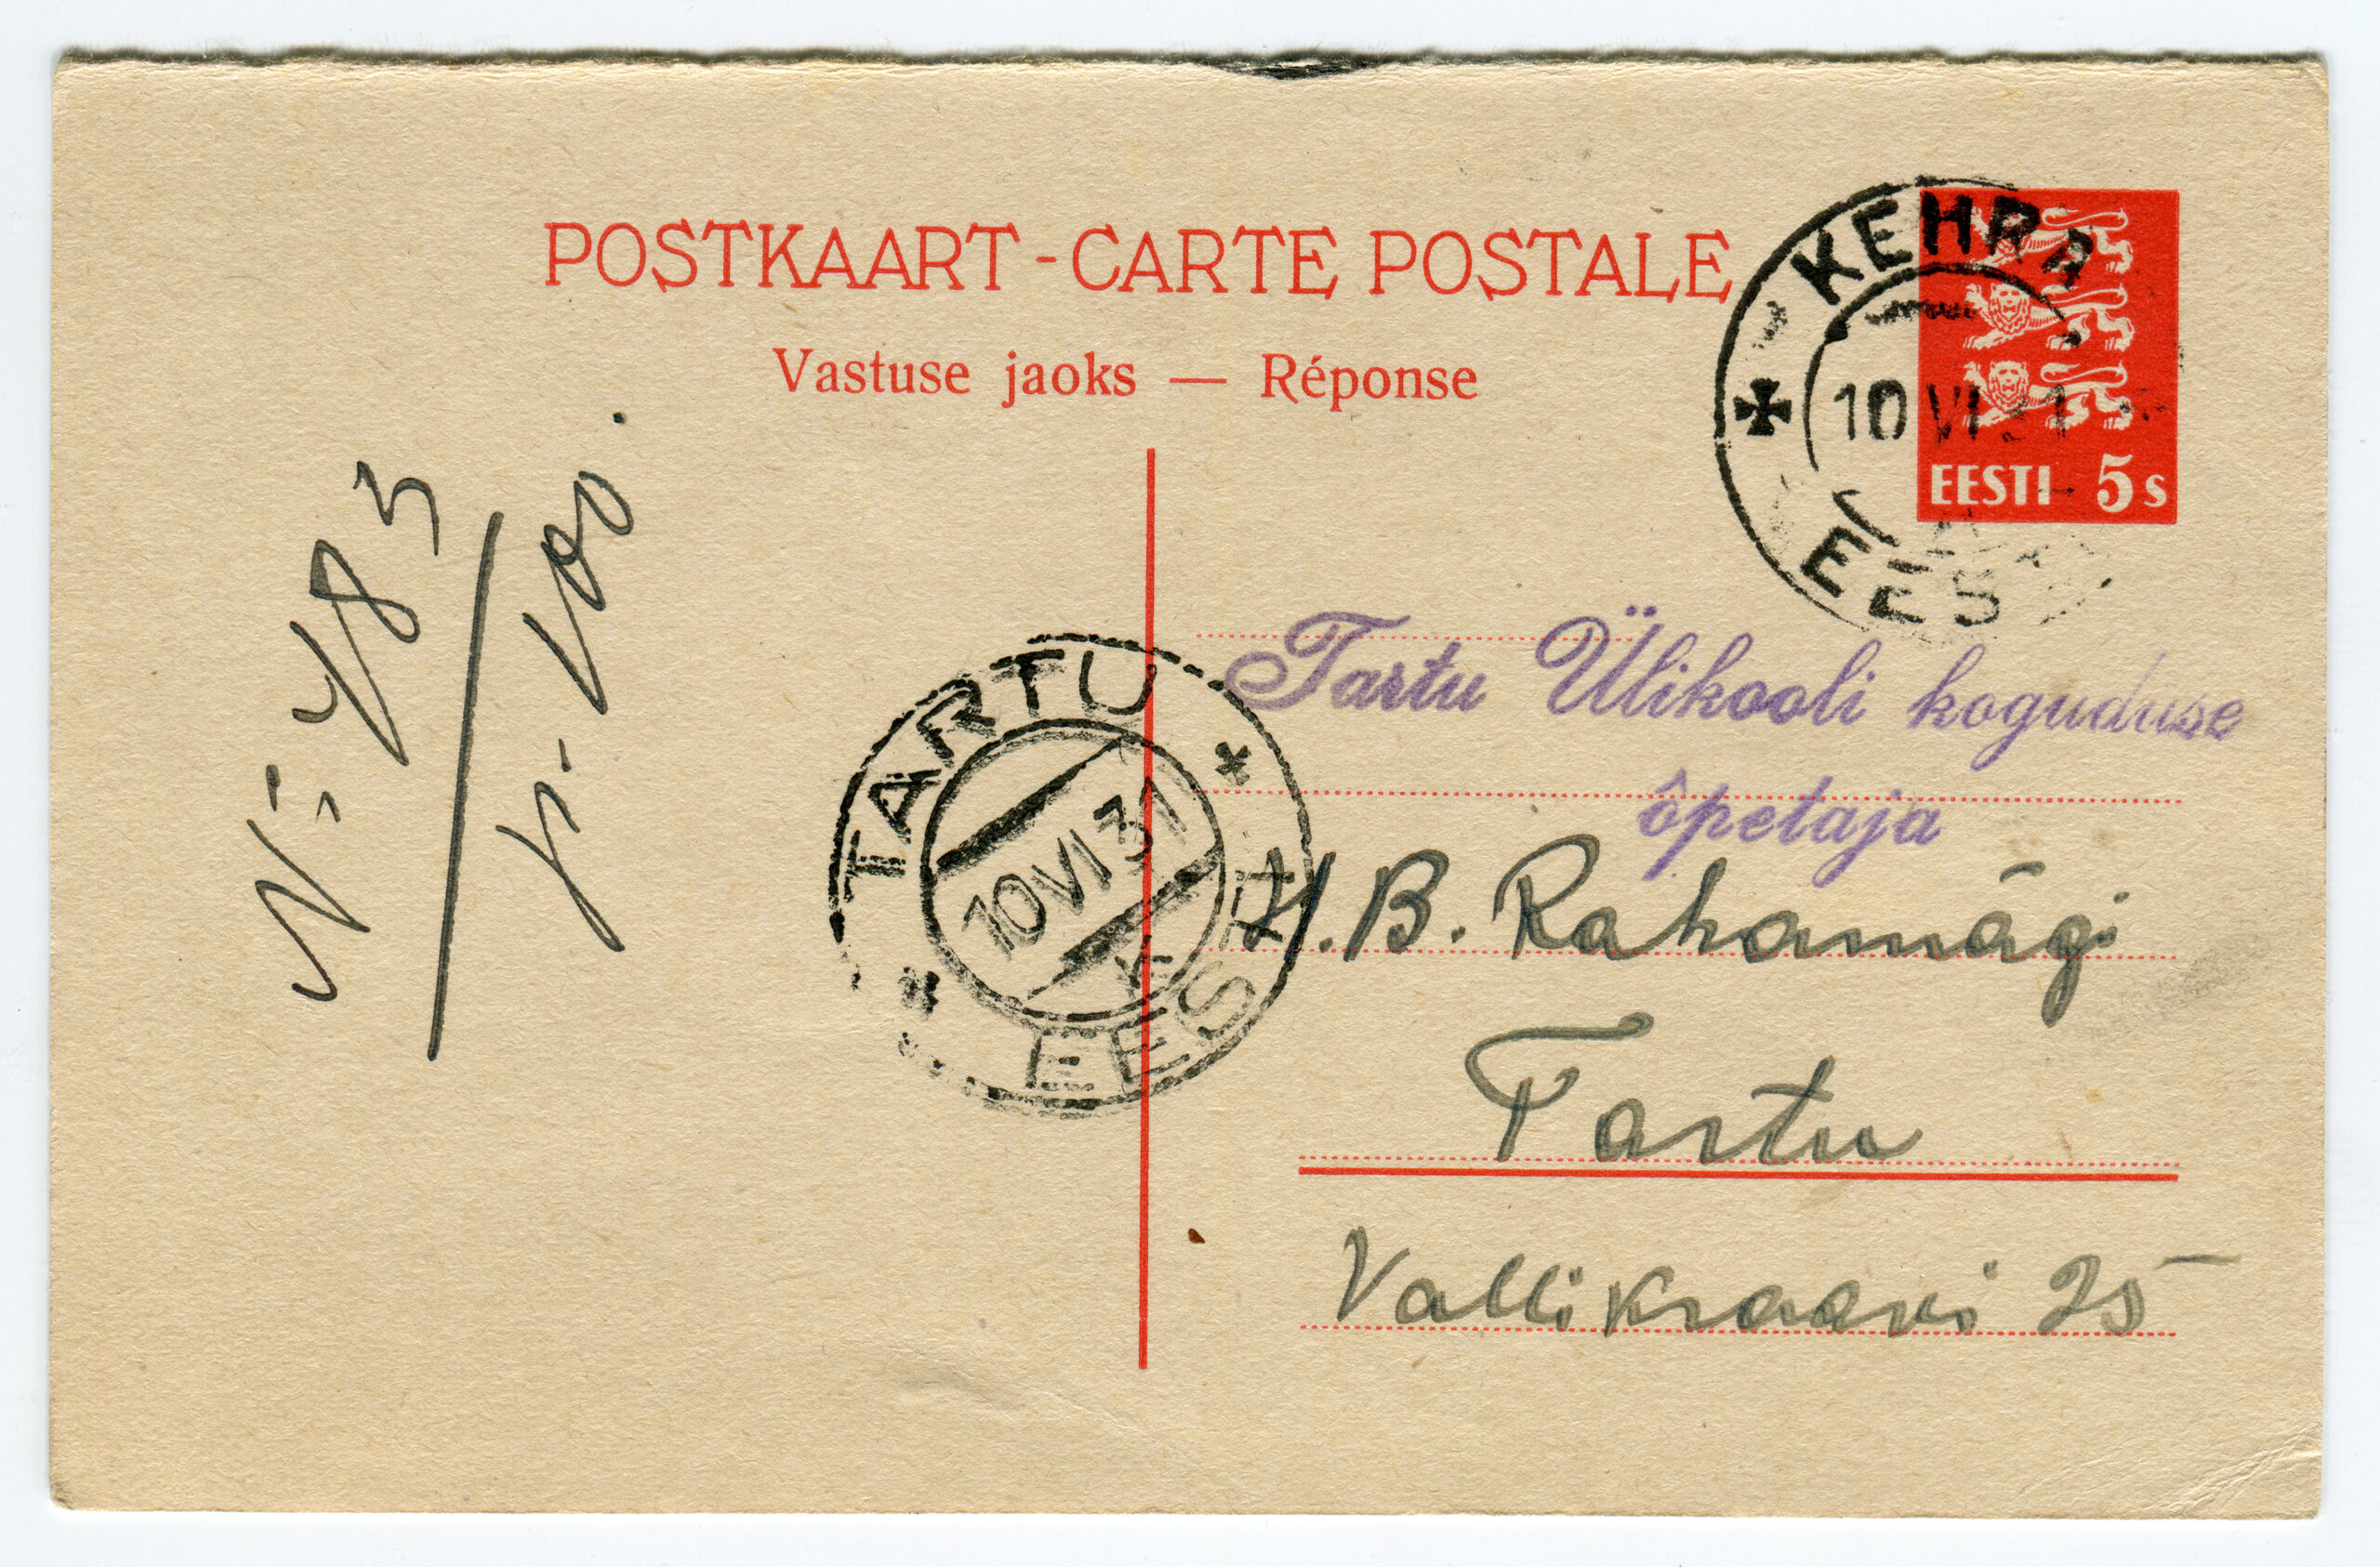 POSTKAART - CARTE POSTALE
Vastuse jaoks — Réponse
KEHRA
10 VI 31
EES
EESTI 5 s
Tartu Ülikooli koguduse
õpetaja
H. B. Rahamägi
Tartu
Vallikraavi 25
TARTU
10 VI 31
EESTI
483